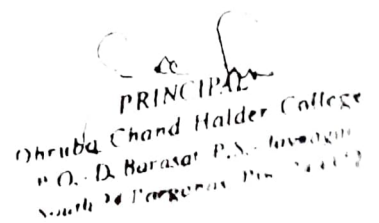 PRINCIPAL
Dhruba Chand Halder College
P.O.- D. Barasat P.S.-
South 24 Parganas